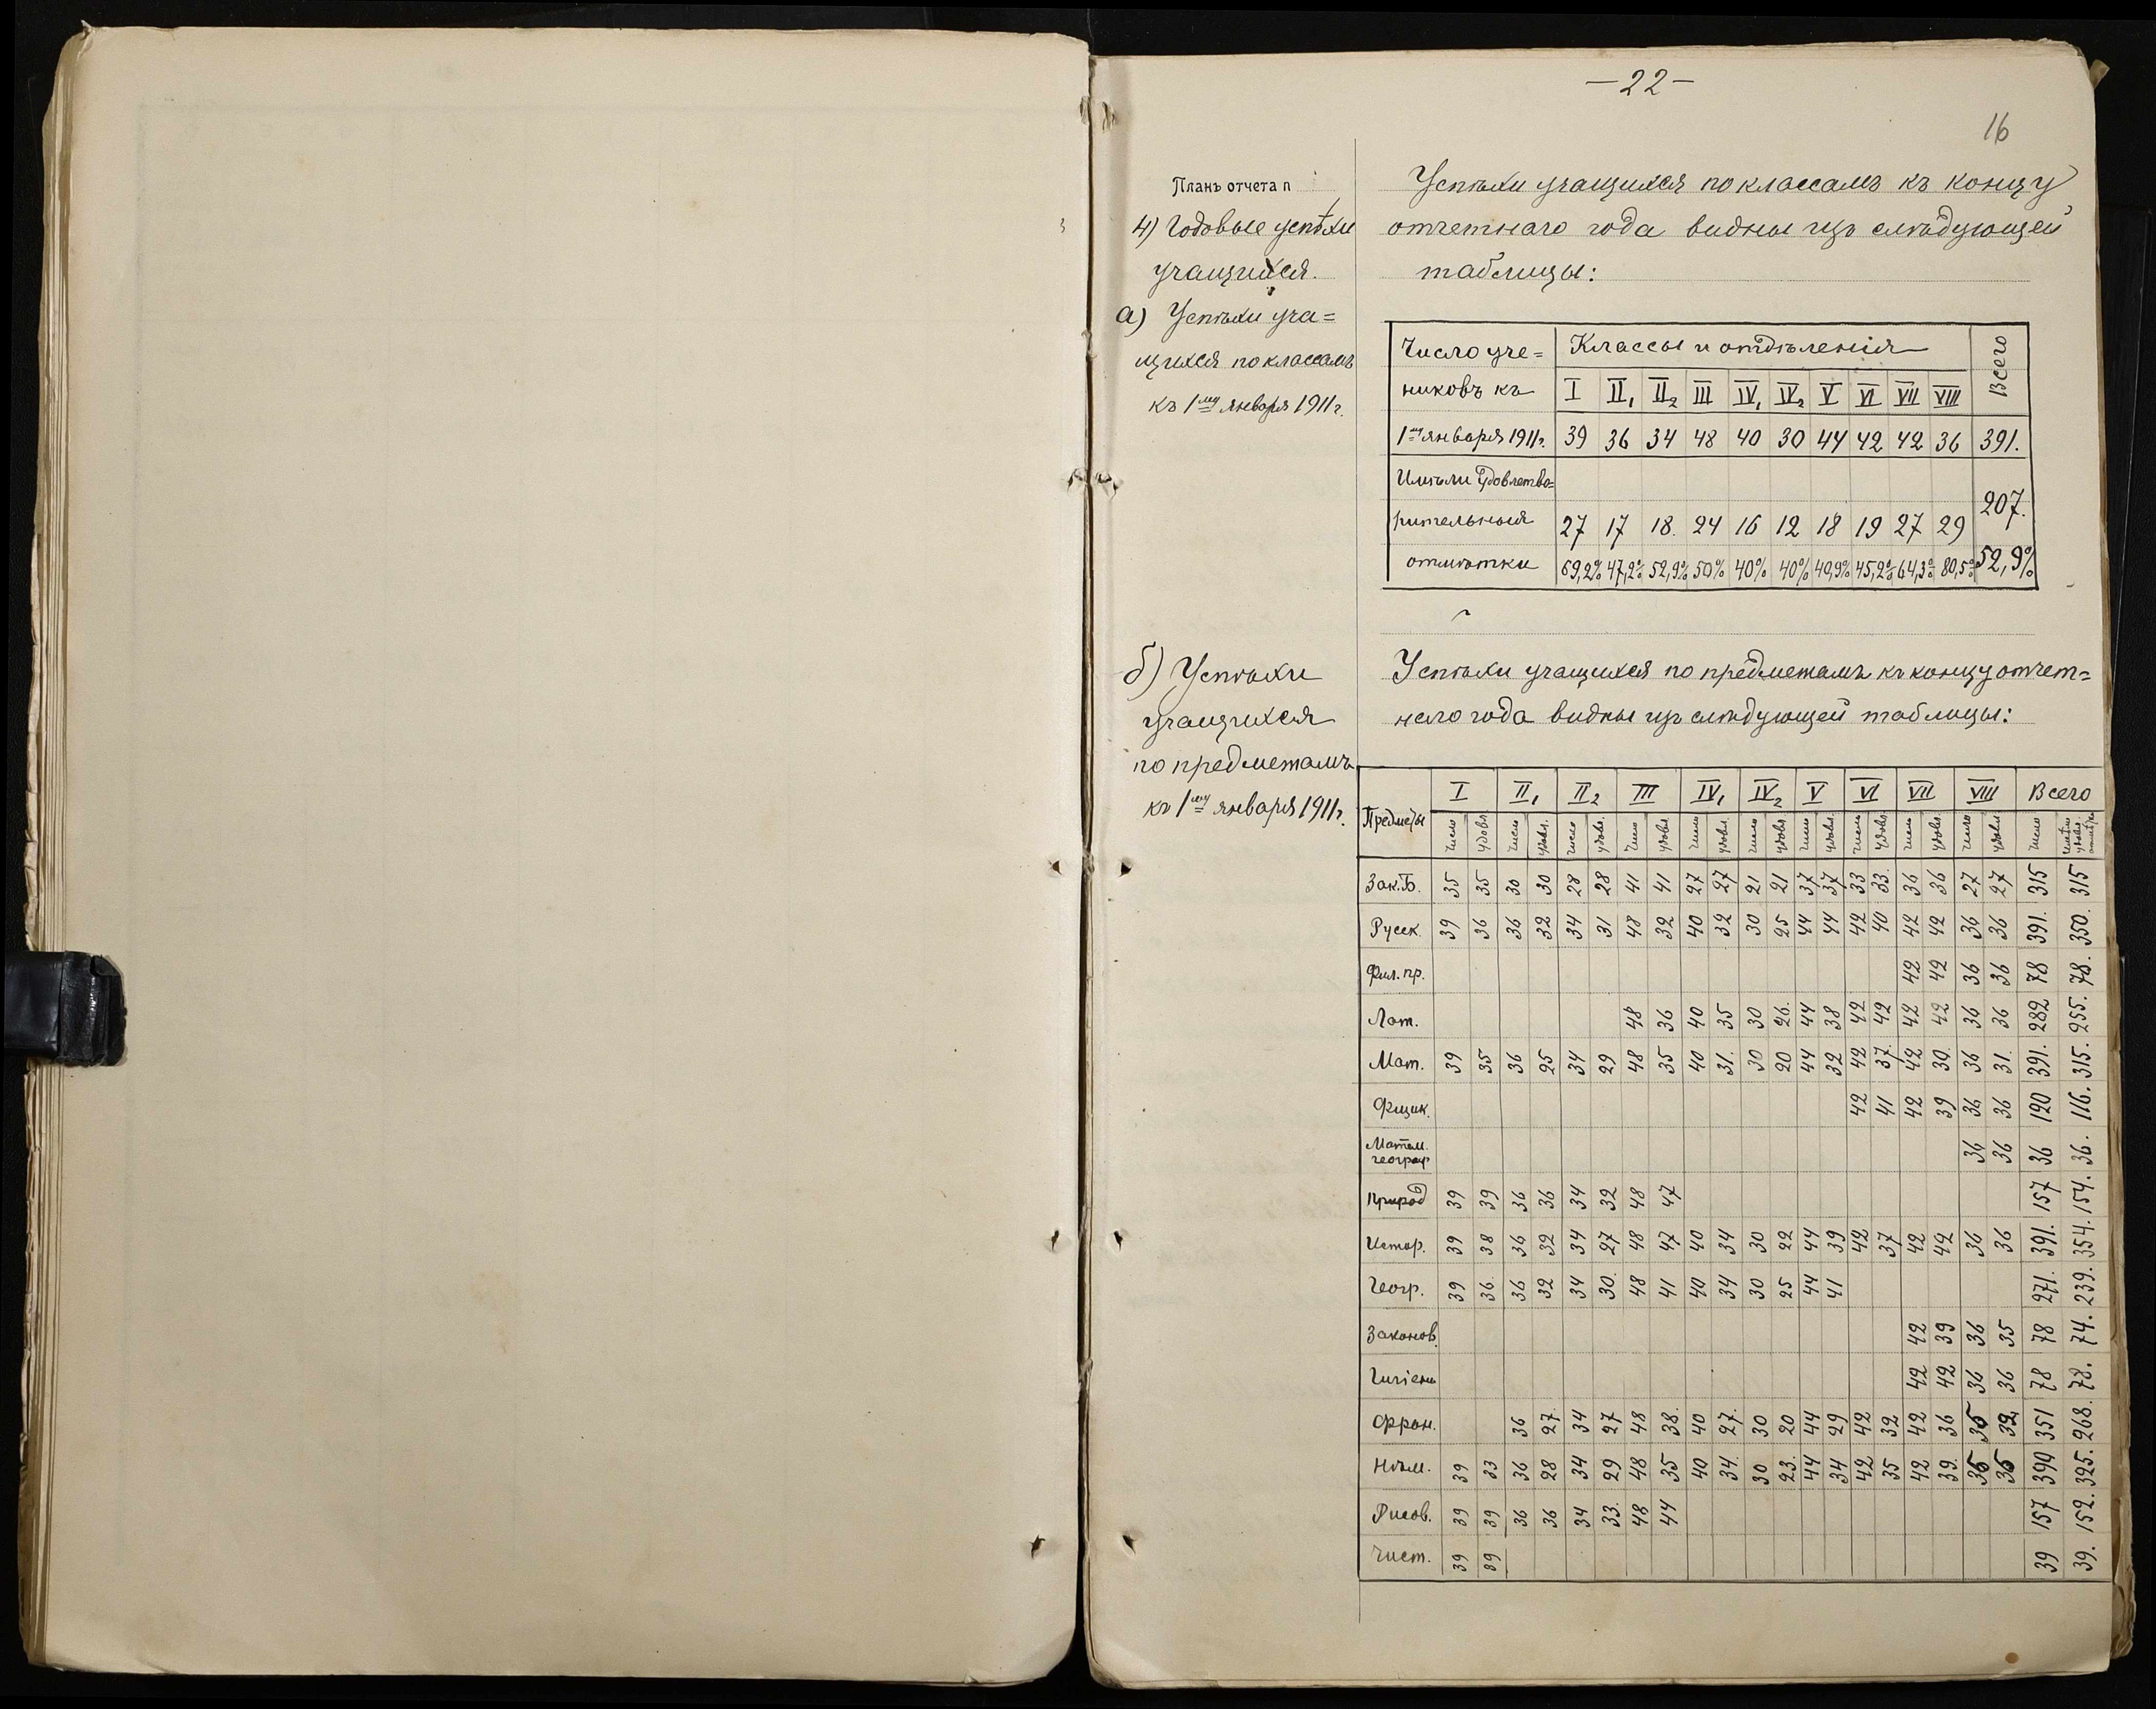 —22—
16
Планъ отчета п
4) Годовые успѣхи
учащихся.
а) Успѣхи уча=
щихся по классамъ
къ 1му января 1911 г.
Успѣхи учащихся по классамъ къ концу
отчетнаго года видны изъ слѣдующей
таблицы:
Число уче= Классы и отдѣленія Всего
никовъ къ I II1 II2 III IV1 IV2 V VI VII VIII
1му января 1911 г. 39 36 34 48 40 30 44 42 42 36 391.
Имѣли удовлетво=
рительныя 27 17 18. 24 16 12 18 19 27 29 207.
отмѣтки 69,2% 47,2% 52,9% 50% 40% 40% 40,9% 45,2% 64,3% 80,5% 52,9%
б) Успѣхи
учащихся
по предметамъ
къ 1му января 1911 г.
Успѣхи учащихся по предметамъ къ концу отчет=
наго года видны изъ слѣдующей таблицы:
Предметы I II1 II2 III IV1 IV2 V VI VII VIII Всего
число удовл. число удовл. число удовл. число удовл. число удовл. число удовл. число удовл. число удовл. число удовл. число удовл. число имѣло удовл. отмѣтки
Зак. Б. 35 35 30 30 28 28 41 41 27 27 21 21 37 37 33 33. 36 36 27 27 315 315
Русск. 39 36 36 32 34 31 48 32 40 32 30 25 44 44 42 40 42 42 36 36 391. 350.
Фил. пр. 42 42 36 36 78 78.
Лат. 48 36 40 35 30 26. 44 38 42 42 42 42 36 36 282 255.
Мат. 39 35 36 25 34 29 48 35 40 31. 30 20 44 32 42 37. 42 30. 36 31. 391. 315.
Физик. 42 41 42 39 36 36 120 116.
Матем.
географ 36 36 36 36.
Природ 39 39 36 36 34 32 48 47 157 154.
Истор. 39 38 36 32 34 27 48 47 40 34 30 22 44 39 42 37 42 42 36 36 391. 354.
Геогр. 39 36. 36 32 34 30. 48 41 40 34 30 25 44 41 271. 239.
Законов. 42 39 36 35 78 74.
Гигіена 42 42 36 36 78 78.
Фран. 36 27. 34 27 48 38. 40 27. 30 20 44 29 42 32 42 36 35 32 351 268.
Нѣм. 39 33 36 28 34 29 48 35 40 34. 30 23. 44 34 42 35 42 39. 35 35 390 325.
Рисов. 39 39 36 36 34 33. 48 44 157 152.
Чист. 39 39 39 39.